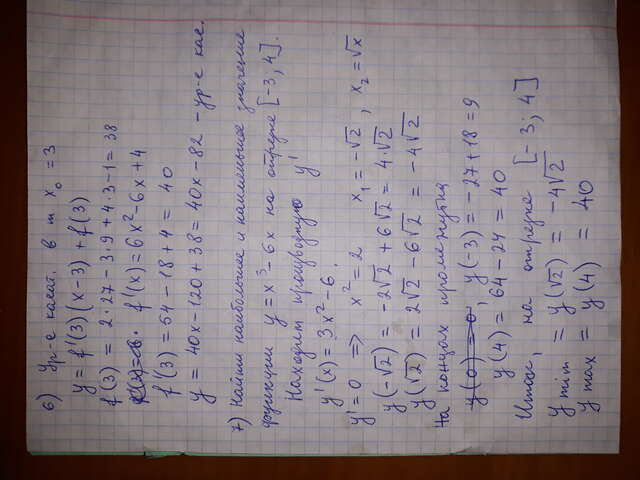 6) Ур-е касат. в т x₀ = 3
y = f'(3)(x-3) + f(3)
f(3) = 2·27-3·9+4·3-1 = 38
f'(x) = 6x²-6x+4
f'(3) = 54-18+4 = 40
y = 40x-120+38 = 40x-82 - ур-е кас.
7) Найти наибольшее и наименьшее значение
функции y = x³-6x на отрезке [-3; 4].
Находим производную y'
y'(x) = 3x²-6.
y' = 0 ⇒ x² = 2 x₁ = -√2, x₂ = √x
y(-√2) = -2√2 + 6√2 = 4·√2
y(√2) = 2√2 - 6√2 = -4√2
На концах промежутка
y(0) = 0, y(-3) = -27+18 = 9
y(4) = 64-24 = 40
Итак, на отрезке [-3; 4]
y min = y(√2) = -4√2
y max = y(4) = 40